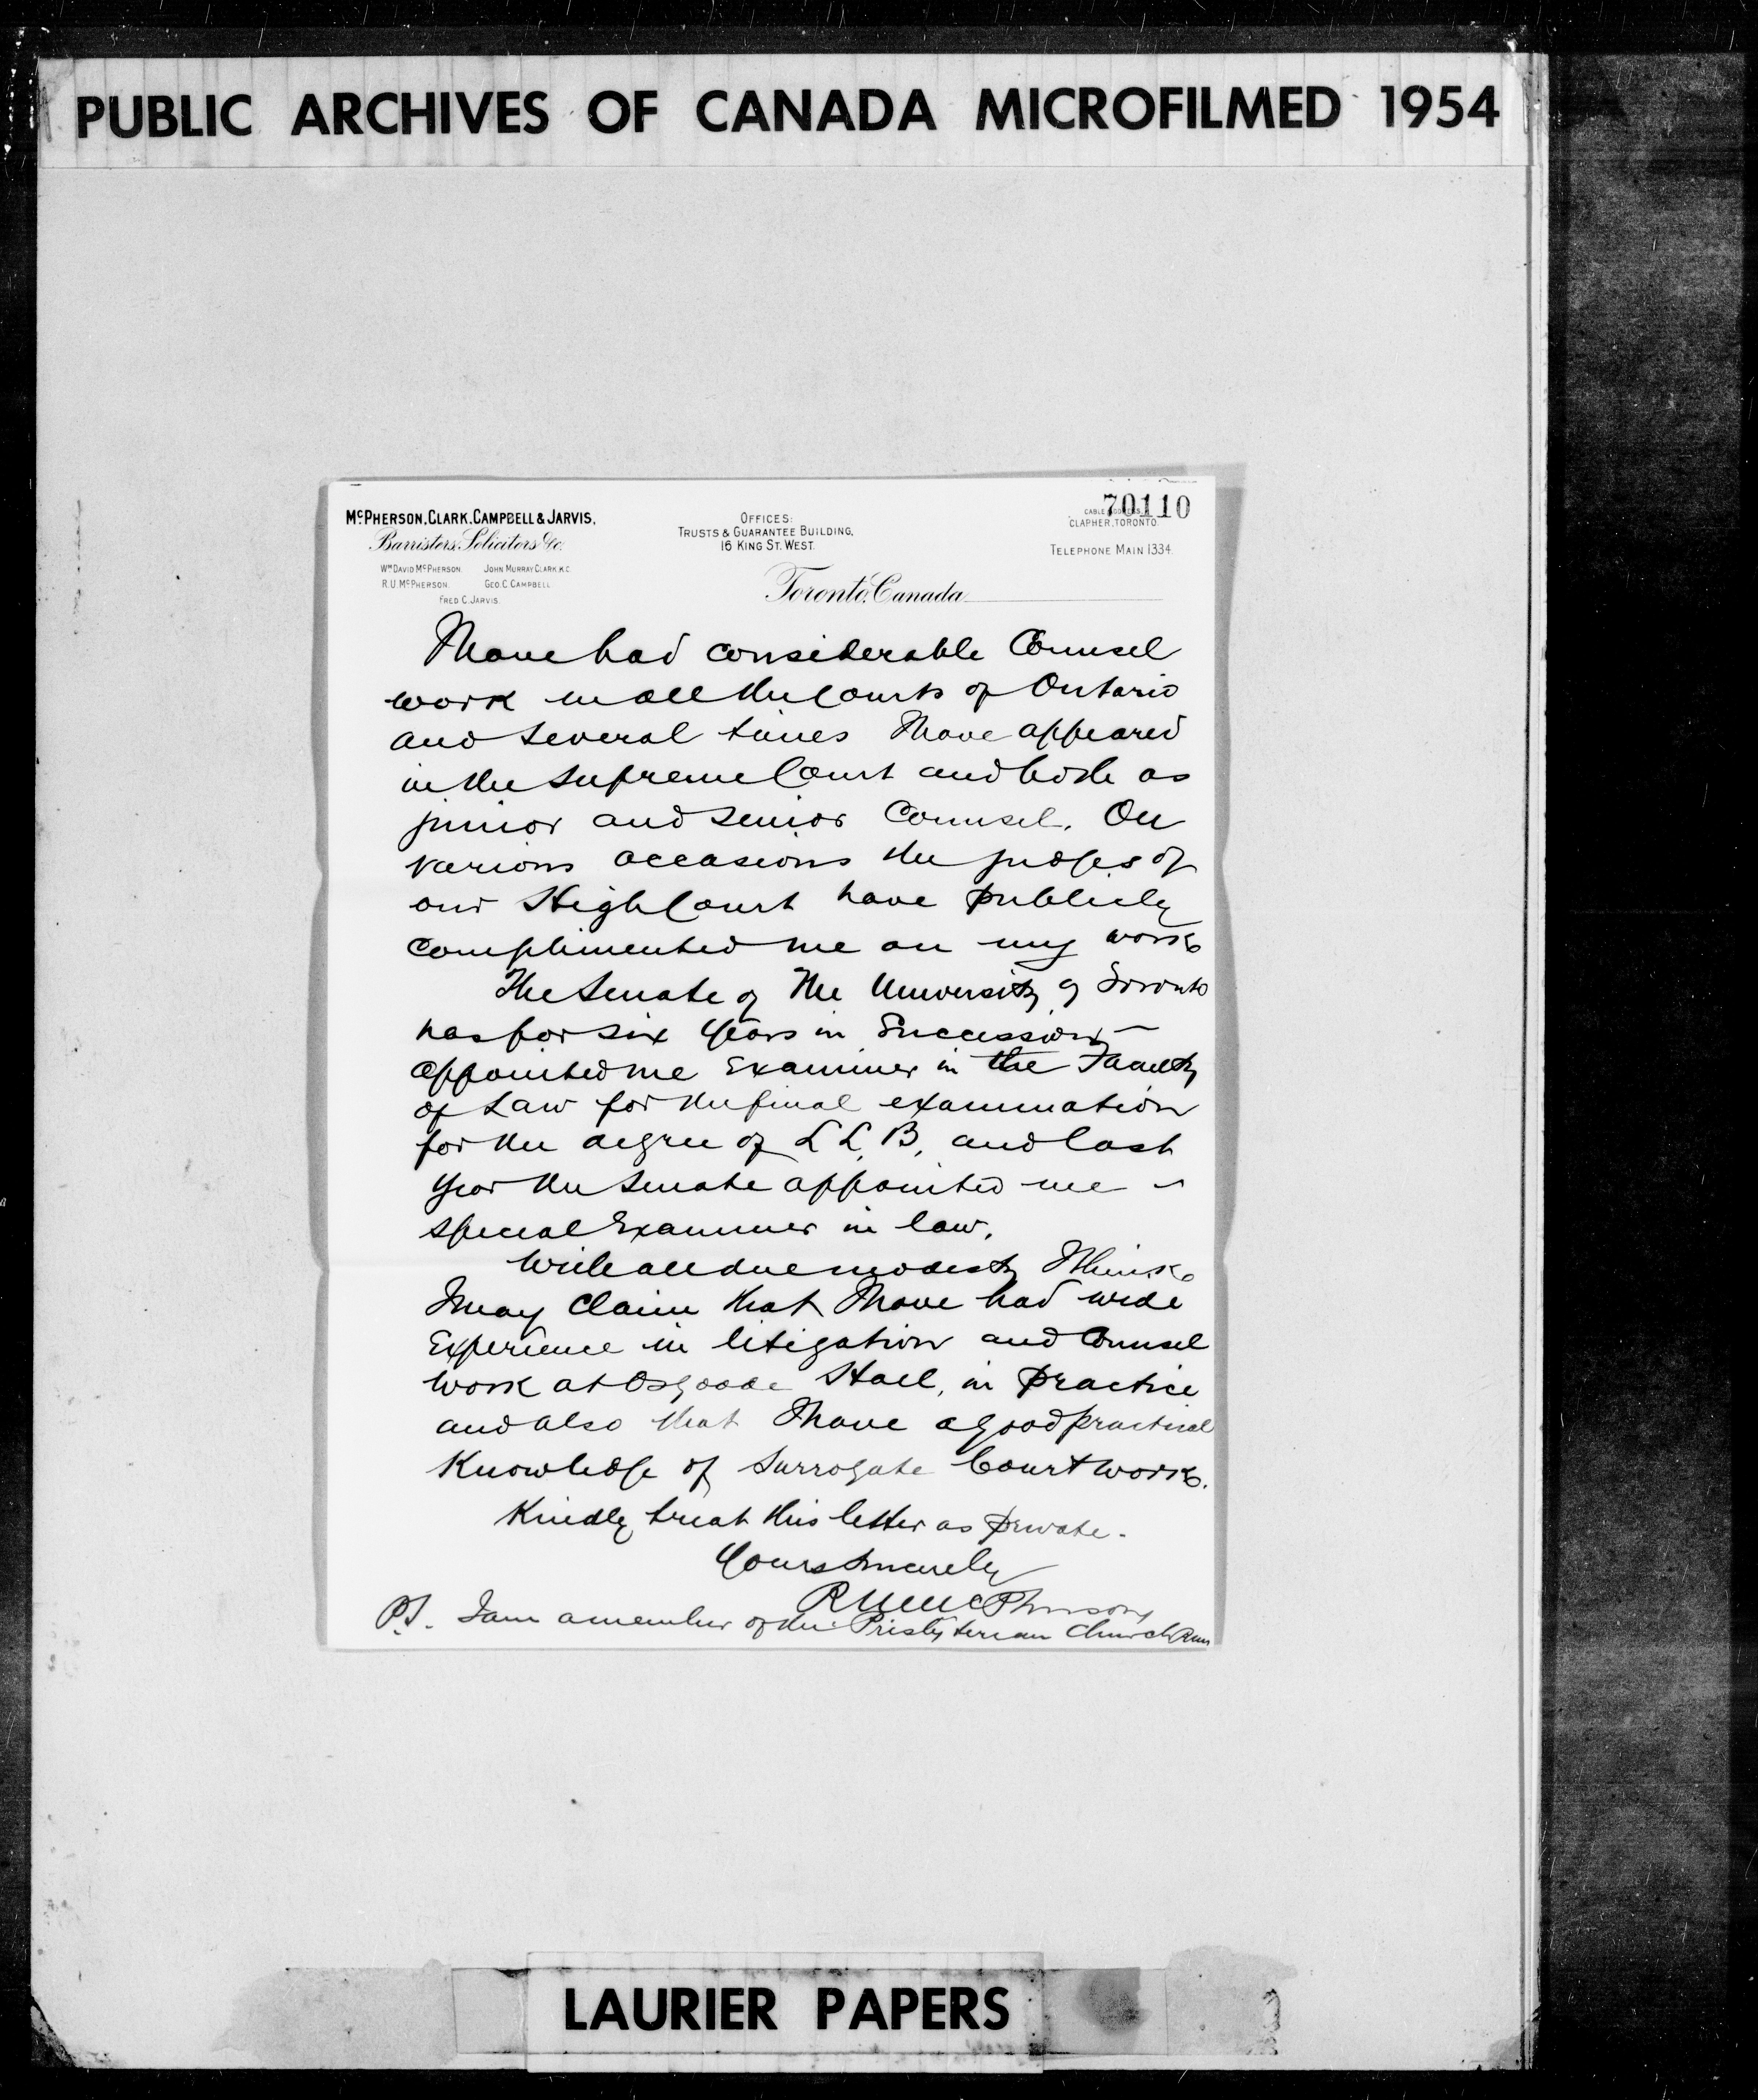 PUBLIC ARCHIVES OF CANADA MICROFILMED 1954
70110
McPHERSON, CLARK, CAMPBELL & JARVIS,
Barristers, Solicitors &c.
Wm DAVID McPHERSON. JOHN MURRAY CLARK, K.C.
R.U. McPHERSON. GEO. C. CAMPBELL
FRED C. JARVIS.
OFFICES:
TRUSTS & GUARANTEE BUILDING,
16 KING ST. WEST.
CABLE ADDRESS,
CLAPHER, TORONTO.
TELEPHONE MAIN 1334.
Toronto, Canada
I have had considerable Counsel
work in all the Courts of Ontario
and several times I have appeared
in the Supreme Court and both as
junior and senior Counsel. On
various occasions the judges of
our High Court have publicly
complimented me on my work
The Senate of The University of Toronto
has for six years in succession
appointed me Examiner in the Faculty
of Law for the final examination
for the degree of L L. B, and last
year the Senate appointed me
special Examiner in law.
With all due modesty I think
I may claim that I have had wide
Experience in litigation and Counsel
work at Osgoode Hall, in practice
and also that I have a good practical
Knowledge of Surrogate Court work.
Kindly treat this letter as private.
Yours sincerely
R U McPherson
P.S. I am a member of the Presbyterian Church RUM
LAURIER PAPERS